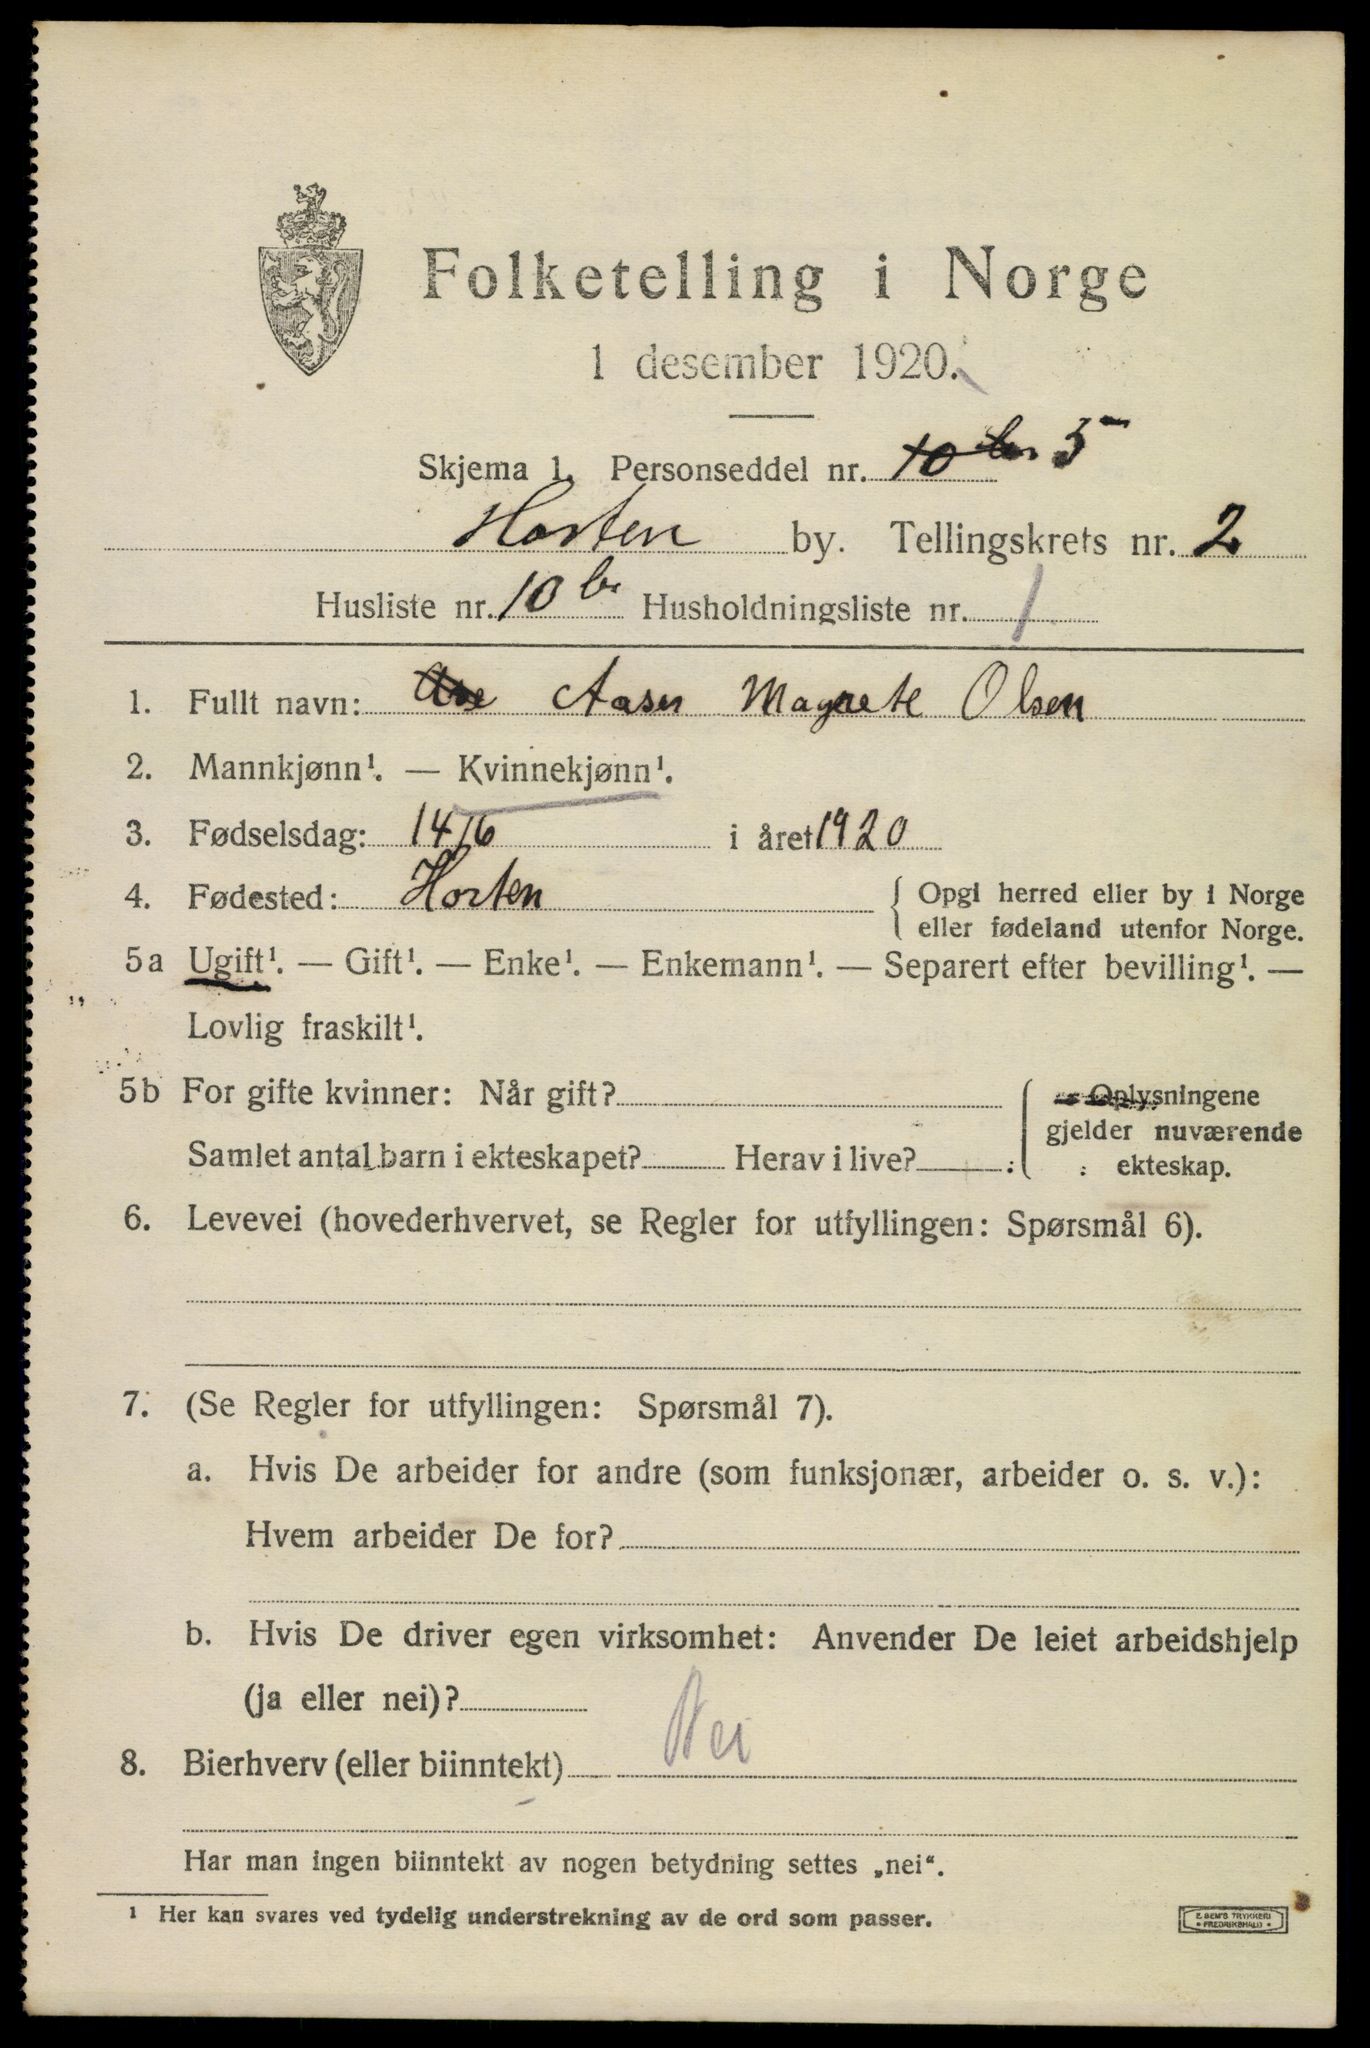 Folketelling i Norge
1 desember 1920.
Skjema 1. Personseddel nr. 10 b. 5
Horten by. Tellingskrets nr. 2
Husliste nr. 10 b. Husholdningsliste nr. 1
1. Fullt navn: Aasen Magrete Olsen
2. Mannkjønn¹. — Kvinnekjønn¹.
3. Fødselsdag: 14/6 i året 1920
4. Fødested: Horten { Opgi herred eller by i Norge
eller fødeland utenfor Norge.
5a Ugift¹. — Gift¹. — Enke¹. — Enkemann¹. — Separert efter bevilling¹. —
Lovlig fraskilt¹.
5b For gifte kvinner: Når gift? { Oplysningene
gjelder nuværende
Samlet antal barn i ekteskapet? Herav i live?
ekteskap.
6. Levevei (hovederhvervet, se Regler for utfyllingen: Spørsmål 6).
7. (Se Regler for utfyllingen: Spørsmål 7).
a. Hvis De arbeider for andre (som funksjonær, arbeider o. s. v.):
Hvem arbeider De for?
b. Hvis De driver egen virksomhet: Anvender De leiet arbeidshjelp
(ja eller nei)?
8. Bierhverv (eller biinntekt) Nei
Har man ingen biinntekt av nogen betydning settes „nei“.
¹ Her kan svares ved tydelig understrekning av de ord som passer.
E. SEM'S TRYKKERI
• FREDRIKSHALD •